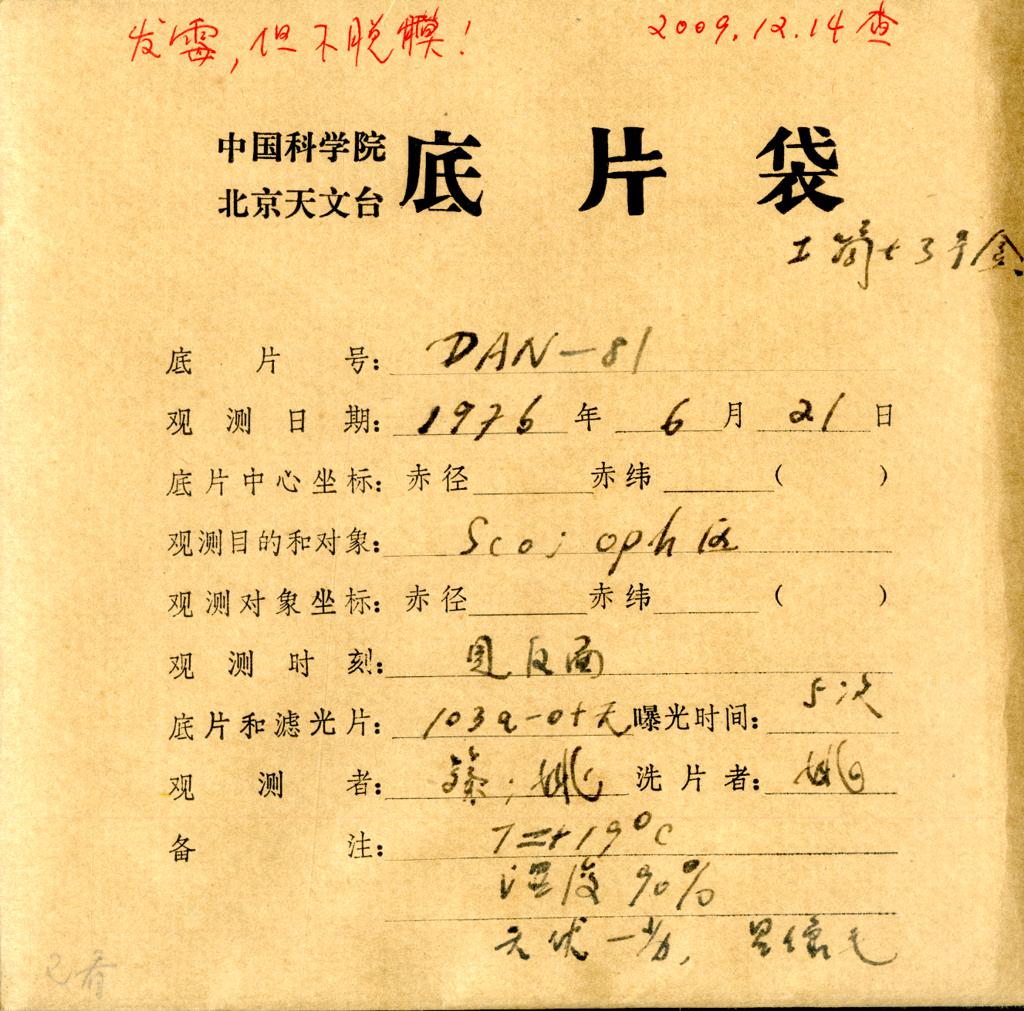 发霉，但不脱膜！ 2009.12.14查
中国科学院
北京天文台
底片袋
底片号： DAN-81
观测日期： 1976年 6月 21日
底片中心坐标： 赤径 赤纬 ( )
观测目的和对象： Sco; oph 区
观测对象坐标： 赤径 赤纬 ( )
观测时刻： 见反面
底片和滤光片： 103a-0+无 曝光时间： 5次
观测者： 姚 洗片者： 姚
备注： T=+19°C
湿度 90%
已看